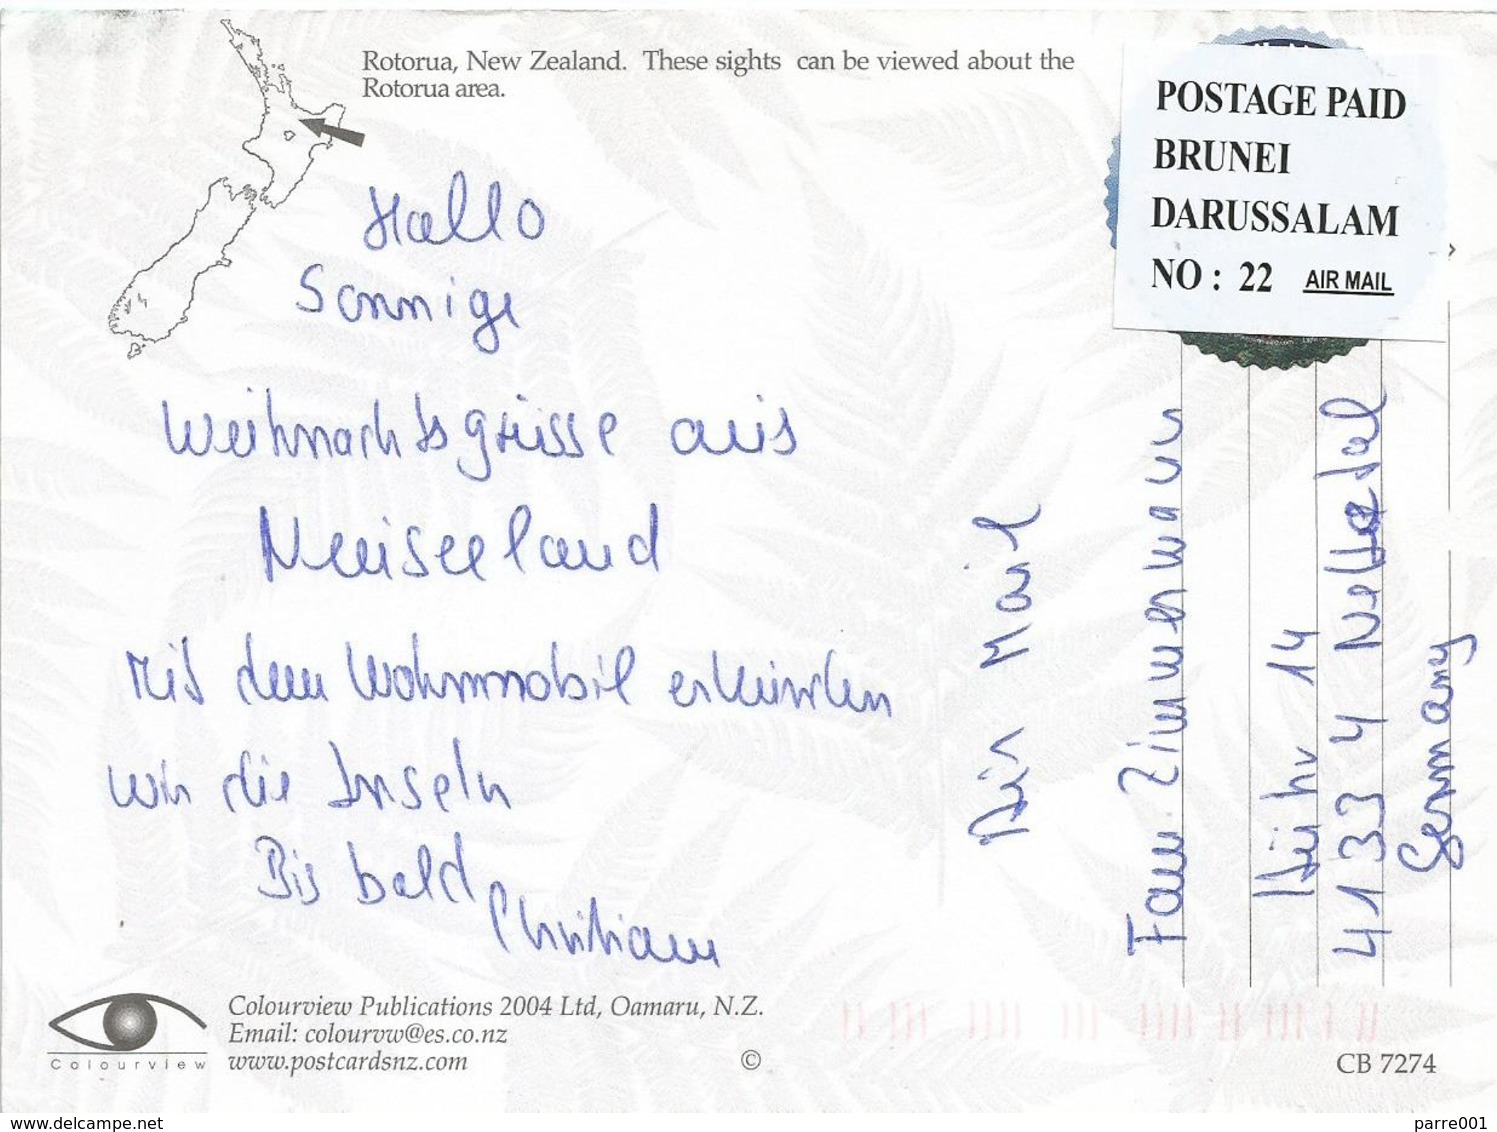 Rotorua, New Zealand. These sights can be viewed about the
Rotorua area.
POSTAGE PAID
BRUNEI
DARUSSALAM
NO : 22 AIR MAIL
Hallo
Sonnige
Weihnachtsgrüsse aus
Neuseeland
Mit dem Wohnmobil erkunden
wir die Inseln
Bis bald
Christiane
Air Mail
Fam Zimmermann
Hühr 14
41334 Nettetal
Germany
Colourview Publications 2004 Ltd, Oamaru, N.Z.
Email: colourvw@es.co.nz
www.postcardsnz.com
Colourview
©
CB 7274
www.delcampe.net
parre001